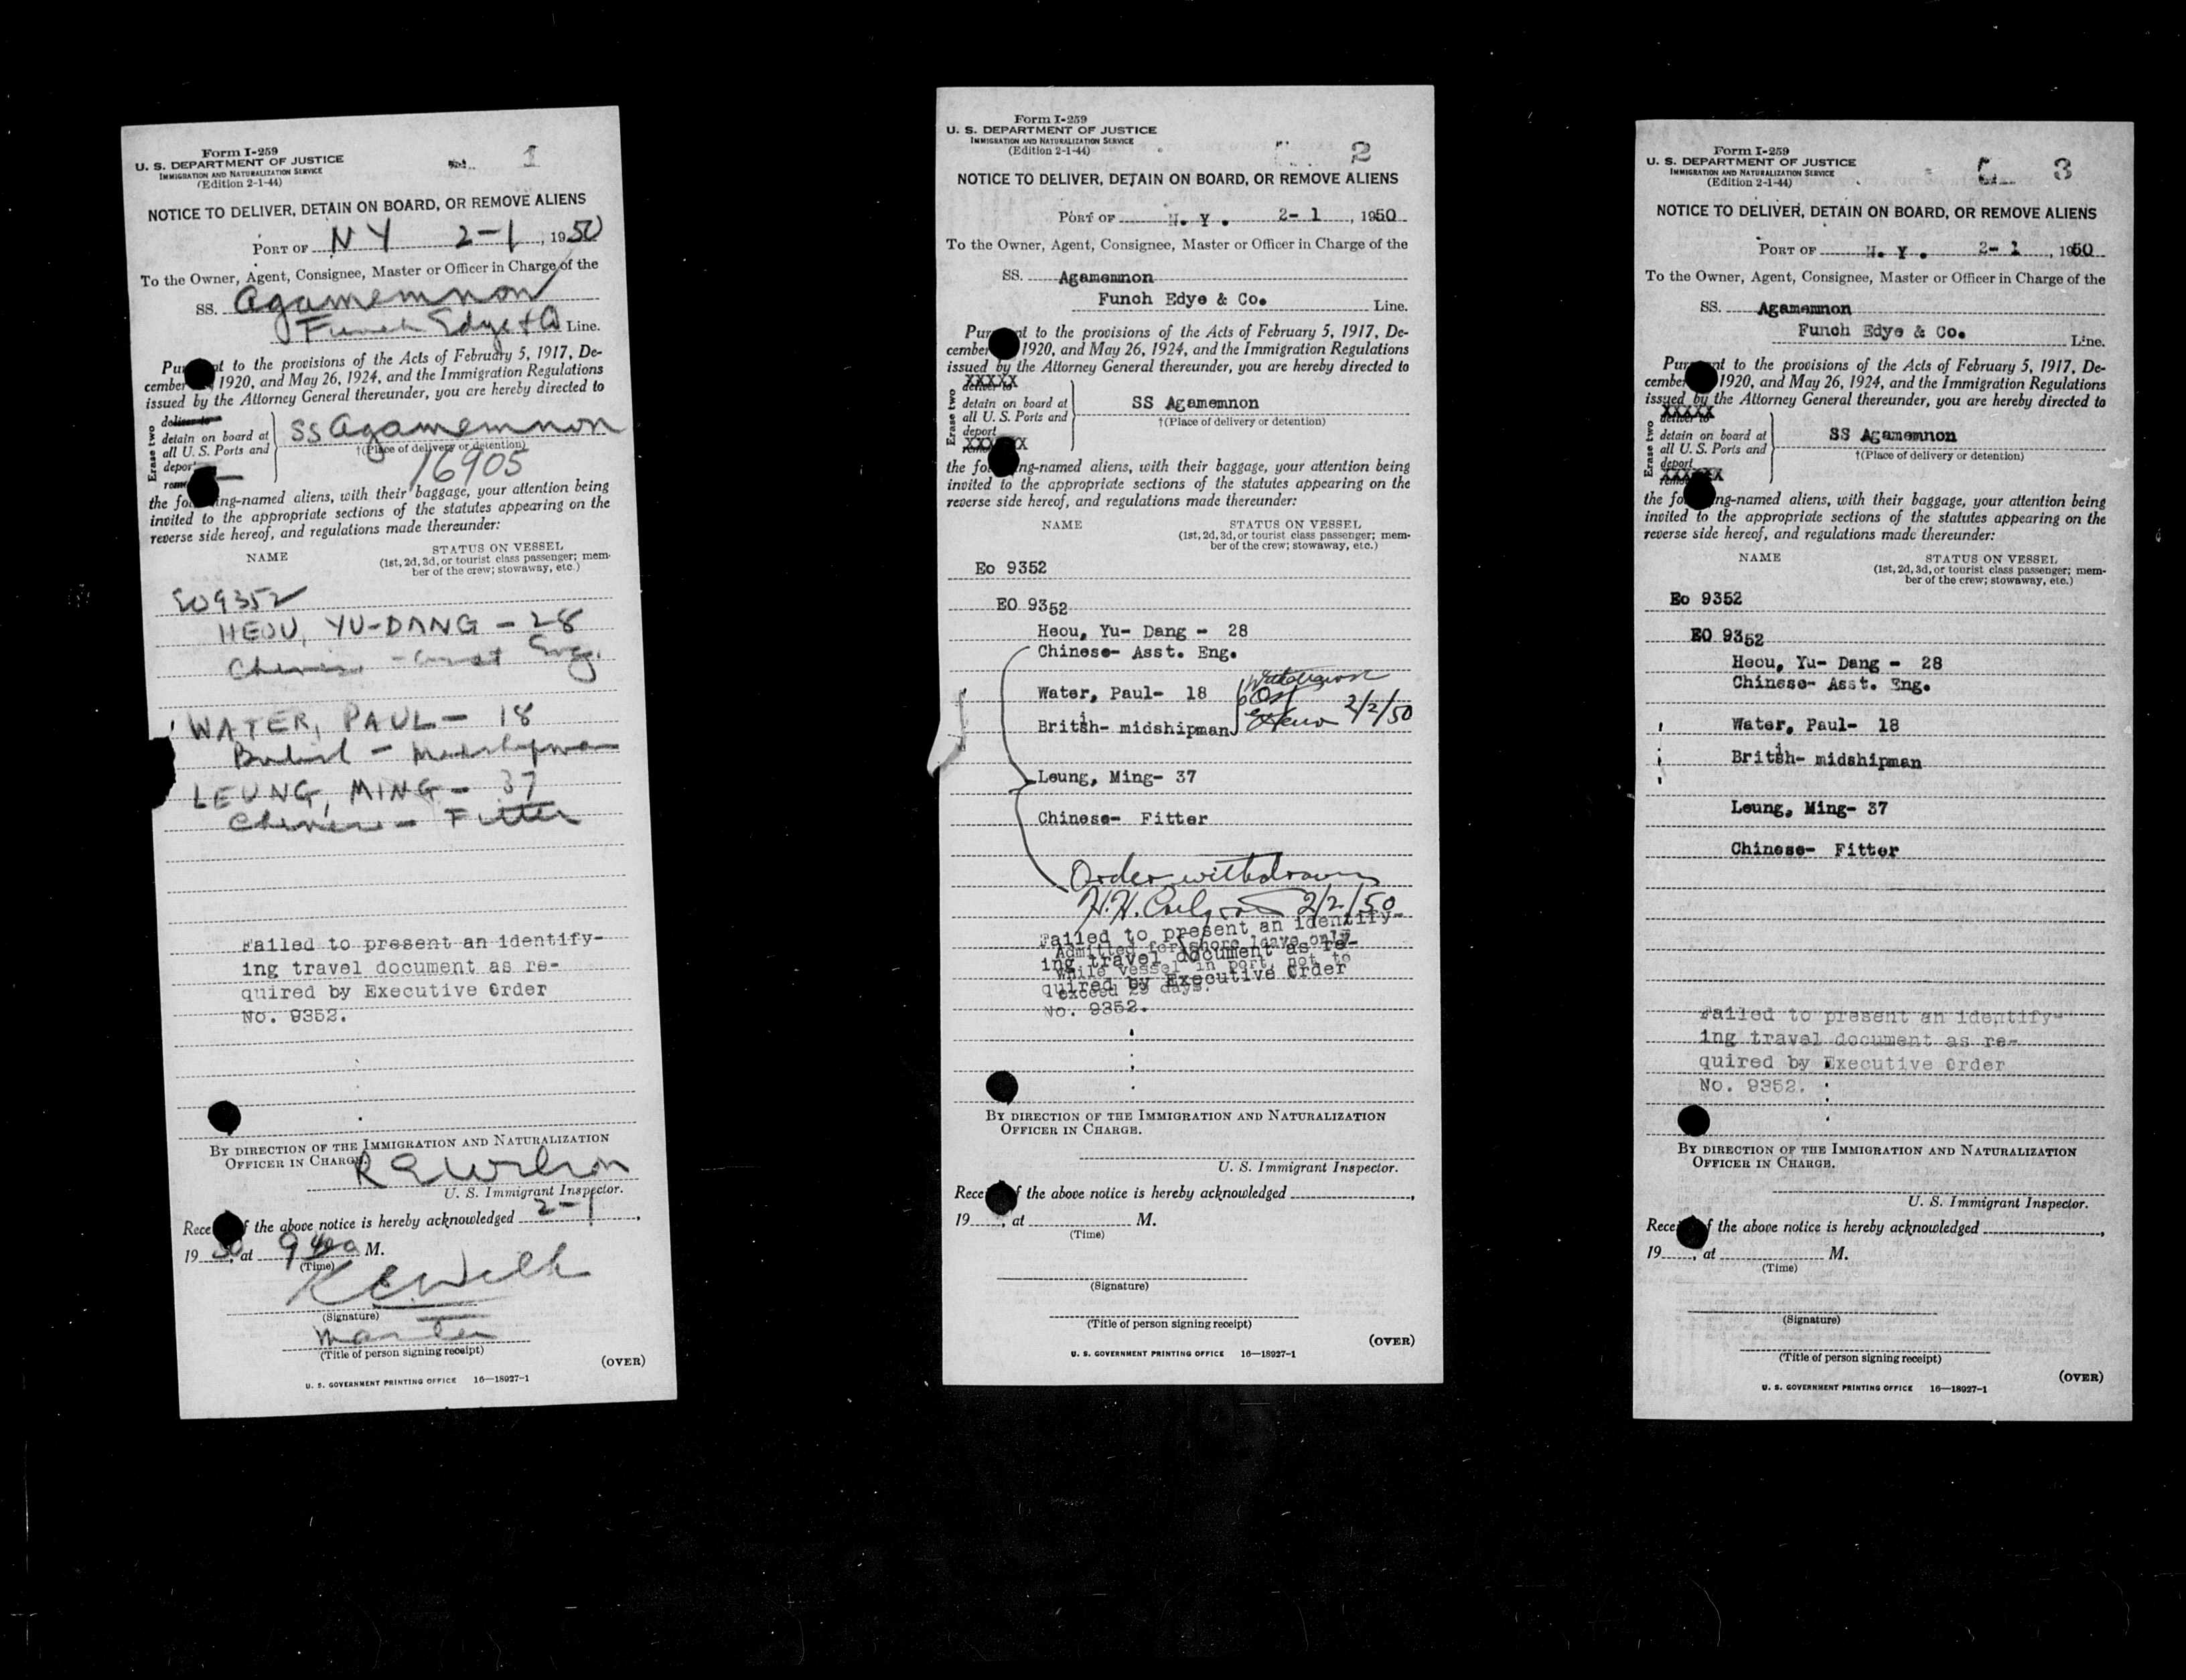 Form I-259
U. S. DEPARTMENT OF JUSTICE
IMMIGRATION AND NATURALIZATION SERVICE
(Edition 2-1-44)
1
NOTICE TO DELIVER, DETAIN ON BOARD, OR REMOVE ALIENS
PORT OF NY 2-1, 1950
To the Owner, Agent, Consignee, Master or Officer in Charge of the
SS. Agamemnon
Funch Edye & Co Line.
Pursuant to the provisions of the Acts of February 5, 1917, De-
cember 1920, and May 26, 1924, and the Immigration Regulations
issued by the Attorney General thereunder, you are hereby directed to
Erase two
deliver to
detain on board at
all U. S. Ports and
deport
remove
SS Agamemnon
†(Place of delivery or detention)
16905
the following-named aliens, with their baggage, your attention being
invited to the appropriate sections of the statutes appearing on the
reverse side hereof, and regulations made thereunder:
NAME STATUS ON VESSEL
(1st, 2d, 3d, or tourist class passenger; mem-
ber of the crew; stowaway, etc.)
EO 9352
HEOU, YU-DANG - 28
Chinese - Asst Eng.
WATER, PAUL - 18
British - Midshipman
LEUNG, MING - 37
Chinese - Fitter
Failed to present an identify-
ing travel document as re-
quired by Executive Order
No. 9352.
BY DIRECTION OF THE IMMIGRATION AND NATURALIZATION
OFFICER IN CHARGE.
R E Wilson
U. S. Immigrant Inspector.
Receipt of the above notice is hereby acknowledged 2-1,
1950, at 9 M.
(Time)
(Signature)
Master
(Title of person signing receipt)
(OVER)
U. S. GOVERNMENT PRINTING OFFICE 16—18927-1
Form I-259
U. S. DEPARTMENT OF JUSTICE
IMMIGRATION AND NATURALIZATION SERVICE
(Edition 2-1-44)
2
NOTICE TO DELIVER, DETAIN ON BOARD, OR REMOVE ALIENS
PORT OF N. Y. 2- 1, 1950
To the Owner, Agent, Consignee, Master or Officer in Charge of the
SS. Agamemnon
Funch Edye & Co. Line.
Pursuant to the provisions of the Acts of February 5, 1917, De-
cember 1920, and May 26, 1924, and the Immigration Regulations
issued by the Attorney General thereunder, you are hereby directed to
Erase two
XXXXX
deliver to
detain on board at
all U. S. Ports and
deport
remove
SS Agamemnon
†(Place of delivery or detention)
the following-named aliens, with their baggage, your attention being
invited to the appropriate sections of the statutes appearing on the
reverse side hereof, and regulations made thereunder:
NAME STATUS ON VESSEL
(1st, 2d, 3d, or tourist class passenger; mem-
ber of the crew; stowaway, etc.)
Eo 9352
EO 9352
Heou, Yu- Dang - 28
Chinese- Asst. Eng.
Water, Paul- 18
British- midshipman
2/2/50
Leung, Ming- 37
Chinese- Fitter
Order withdrawn
2/2/50
Failed to present an identify-
Admitted for shore leave only
ing travel document as re-
while vessel in port, not to
quired by Executive Order
exceed 29 days.
No. 9352.
BY DIRECTION OF THE IMMIGRATION AND NATURALIZATION
OFFICER IN CHARGE.
U. S. Immigrant Inspector.
Receipt of the above notice is hereby acknowledged,
19, at M.
(Time)
(Signature)
(Title of person signing receipt)
(OVER)
U. S. GOVERNMENT PRINTING OFFICE 16—18927-1
Form I-259
U. S. DEPARTMENT OF JUSTICE
IMMIGRATION AND NATURALIZATION SERVICE
(Edition 2-1-44)
3
NOTICE TO DELIVER, DETAIN ON BOARD, OR REMOVE ALIENS
PORT OF N. Y. 2- 1, 1950
To the Owner, Agent, Consignee, Master or Officer in Charge of the
SS. Agamemnon
Funch Edye & Co. Line.
Pursuant to the provisions of the Acts of February 5, 1917, De-
cember 1920, and May 26, 1924, and the Immigration Regulations
issued by the Attorney General thereunder, you are hereby directed to
Erase two
XXXXX
deliver to
detain on board at
all U. S. Ports and
deport
remove
SS Agamemnon
†(Place of delivery or detention)
the following-named aliens, with their baggage, your attention being
invited to the appropriate sections of the statutes appearing on the
reverse side hereof, and regulations made thereunder:
NAME STATUS ON VESSEL
(1st, 2d, 3d, or tourist class passenger; mem-
ber of the crew; stowaway, etc.)
Eo 9352
EO 9352
Heou, Yu- Dang - 28
Chinese- Asst. Eng.
Water, Paul- 18
British- midshipman
Leung, Ming- 37
Chinese- Fitter
Failed to present an identify-
ing travel document as re-
quired by Executive Order
No. 9352.
BY DIRECTION OF THE IMMIGRATION AND NATURALIZATION
OFFICER IN CHARGE.
U. S. Immigrant Inspector.
Receipt of the above notice is hereby acknowledged,
19, at M.
(Time)
(Signature)
(Title of person signing receipt)
(OVER)
U. S. GOVERNMENT PRINTING OFFICE 16—18927-1